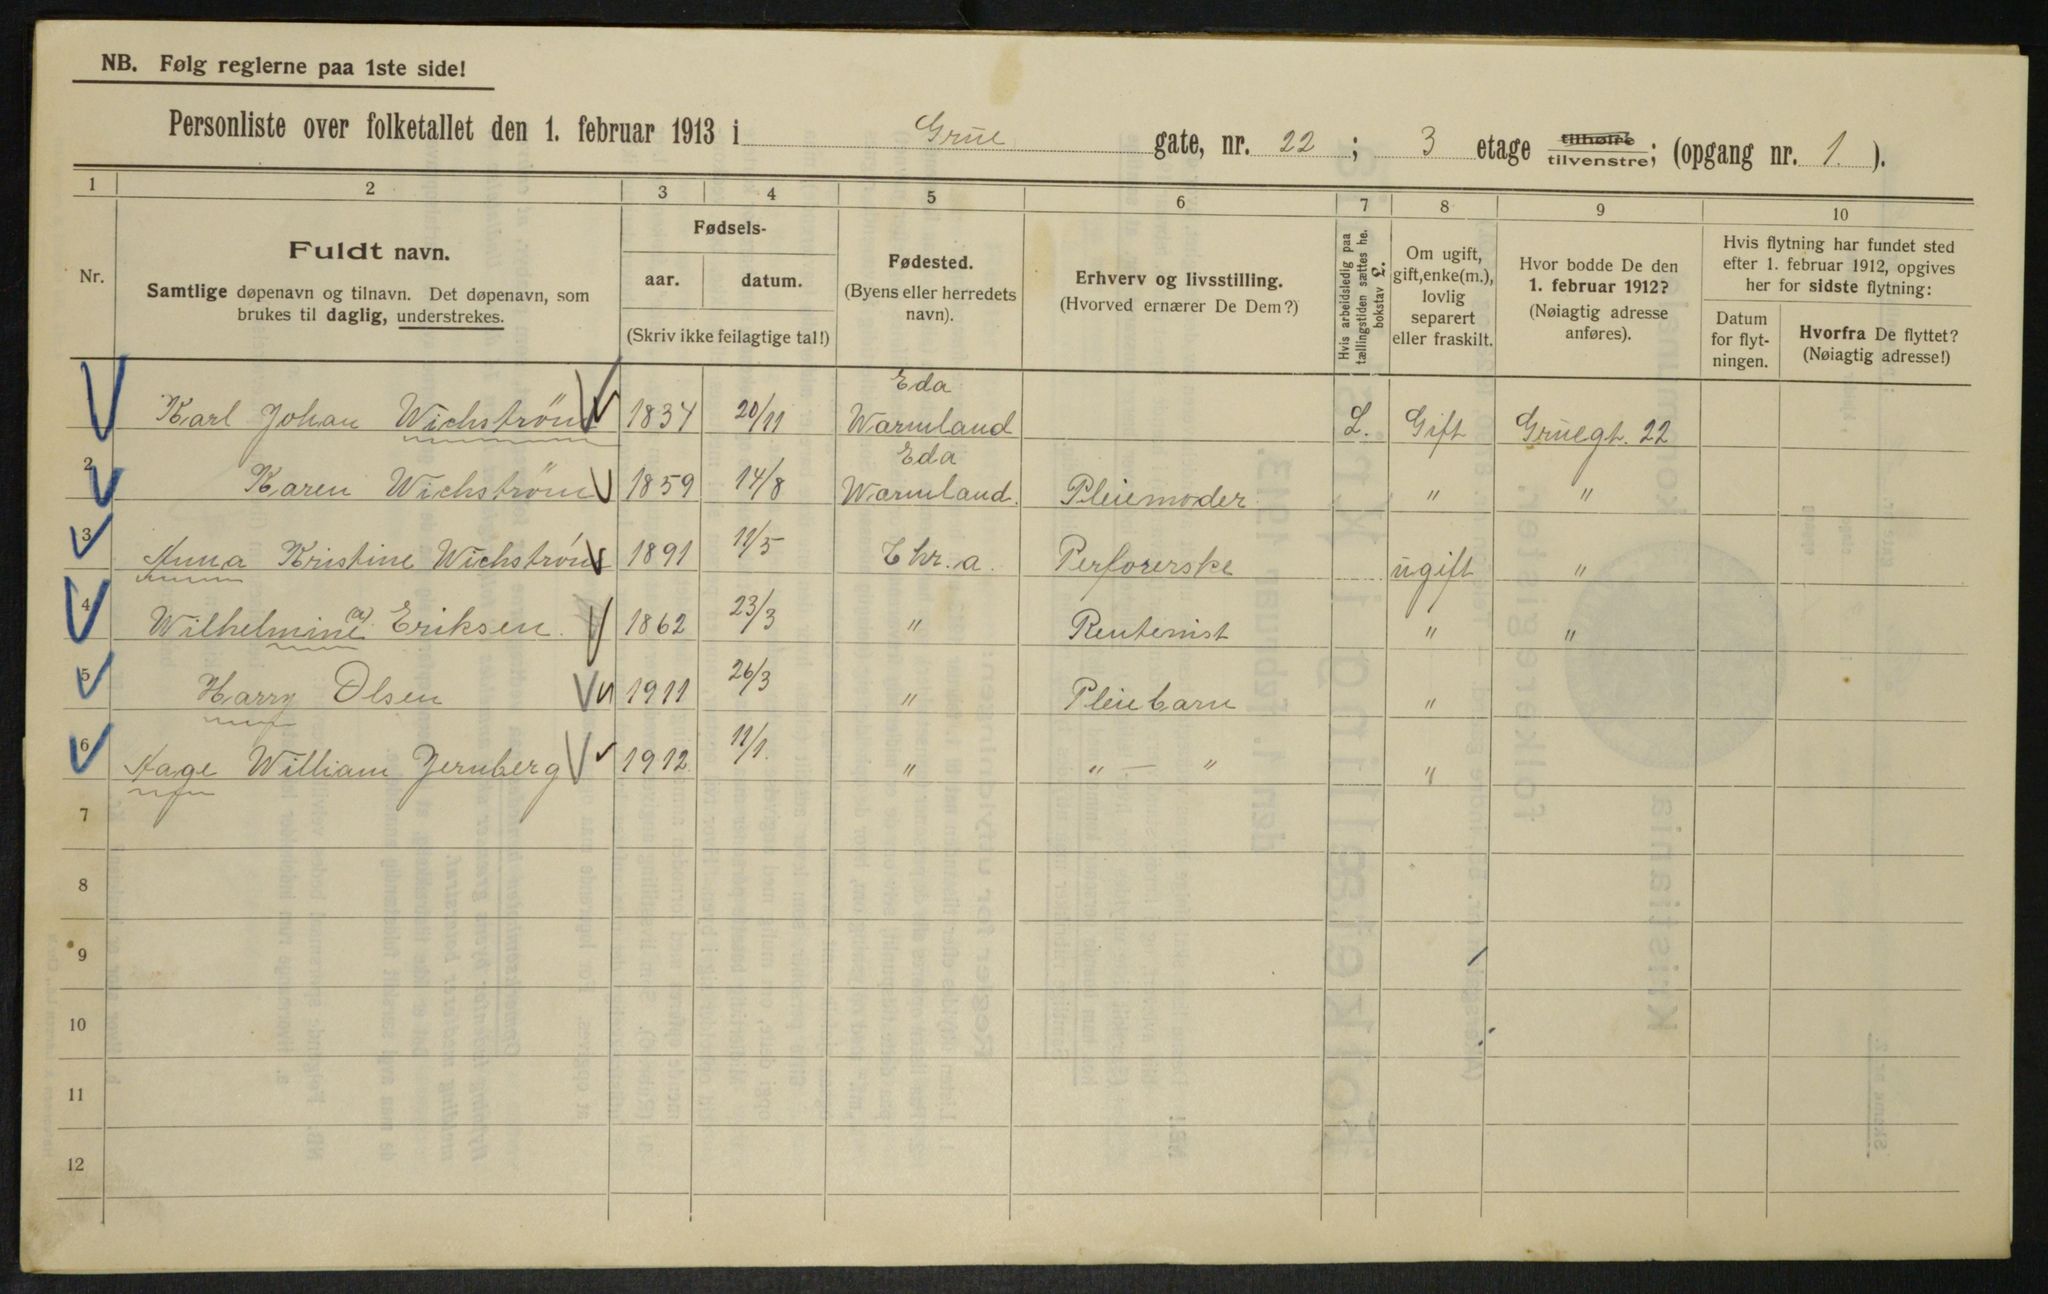 NB. Følg reglerne paa 1ste side!
Personliste over folketallet den 1. februar 1913 i Grue gate, nr. 22; 3 etage tilhøire tilvenstre; (opgang nr. 1.).
1 2 3 4 5 6 7 8 9 10
Nr.
Fuldt navn.
Samtlige døpenavn og tilnavn. Det døpenavn, som
brukes til daglig, understrekes.
Fødsels-
aar. datum.
(Skriv ikke feilagtige tal!)
Fødested.
(Byens eller herredets
navn).
Erhverv og livsstilling.
(Hvorved ernærer De Dem?)
Hvis arbeidsledig paa
tællingstiden sættes he.
bokstav L.
Om ugift,
gift, enke(m.),
lovlig
separert
eller fraskilt.
Hvor bodde De den
1. februar 1912?
(Nøiagtig adresse
anføres).
Hvis flytning har fundet sted
efter 1. februar 1912, opgives
her for sidste flytning:
Datum
for flyt-
ningen.
Hvorfra De flyttet?
(Nøiagtig adresse!)
Eda
Karl Johan Wichstrøm 1834 20/11 Warmland L. Gift Gruegt. 22
Eda
2 Karen Wichstrøm 1859 14/8 Warmland. Pleiemoder " "
3 Anna Kristine Wichstrøm 1891 11/5 Chr.a. Perforerske ugift "
4 Wilhelmine (a) Eriksen. 1862 23/3 " Rentenist " "
5 Harry Olsen 1911 26/3 " Pleiebarn "
6 Aage William Jernberg 1912 11/1. " " — " "
7
8
9
10
11
12